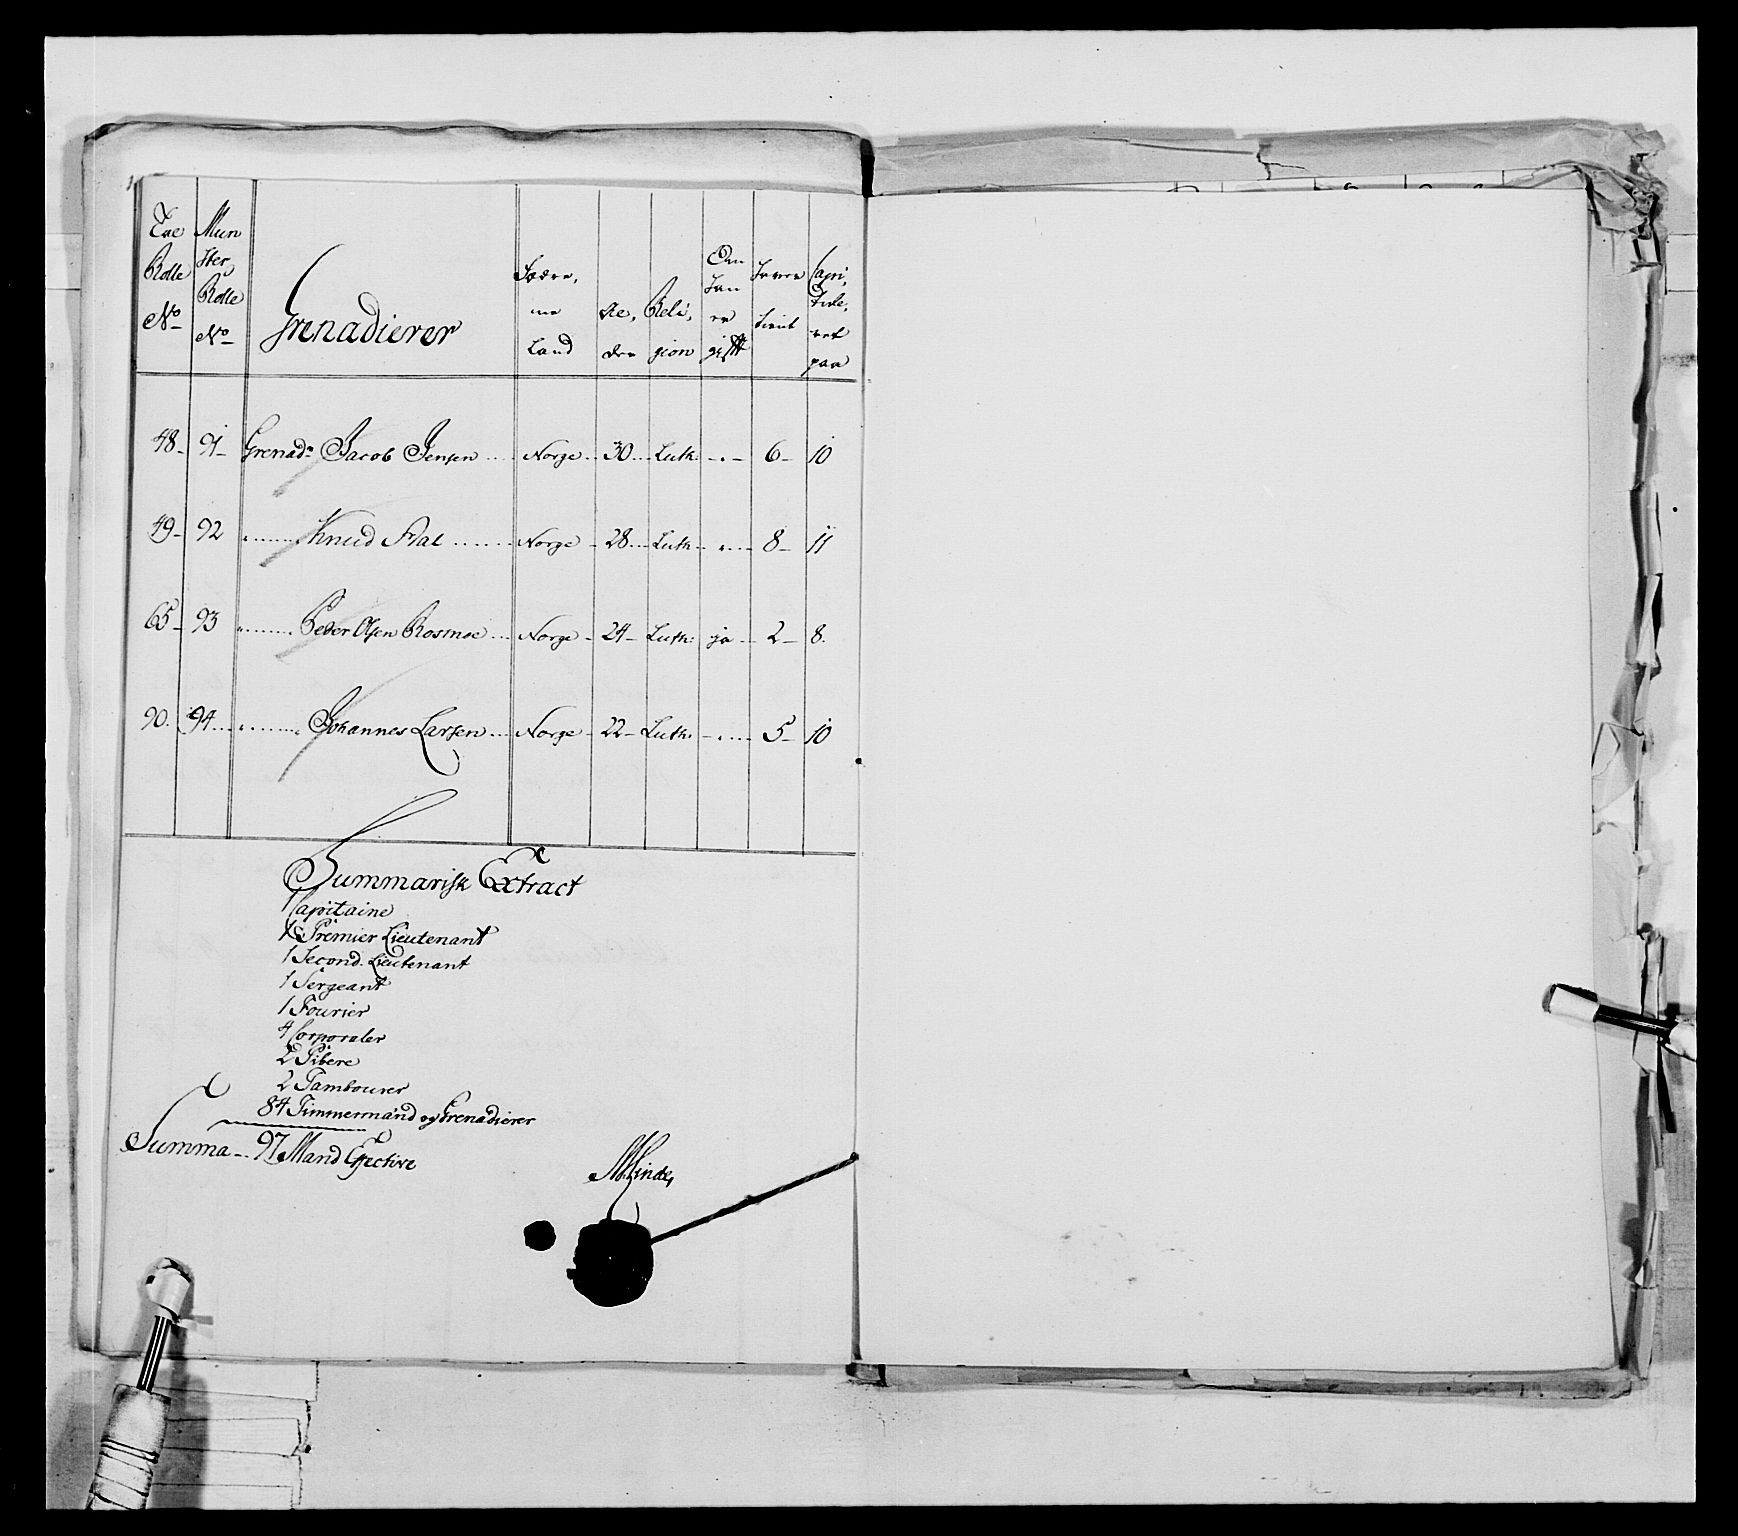 Exe Rolle No
Mun ster Rolle No
Grenadierer
Fædre, ne Land
Al, der
Reli, gion
Om han er gifft
Haver tient
Capi, tule, ret paa
48 - 91 - Grenadr Jacob Jensen .... Norge .. 30 ... Luth: - . - 6 - 10
49 - 92 " ........ Knud Aal ........ Norge - 28 ... Luth - " ... - 8 - 11
65 - 93 " ........ Peder Olsen Rosmoe ... Norge - 24 - Luth: - ja - 2 - 8.
90. 94 ... " ........ Johannes Larsen ... Norge - 22 - Luth: - . ... - 5 - 10
Summarisk Extract
1 Capitaine
1 Premier Lieutenant
1 Second-Lieutenant
1 Sergeant
1 Fourier
4 Corporaler
2 Pibere
2 Tambourer
84 Timmermand og Grenadierer
Summa - 97 Mand Effective